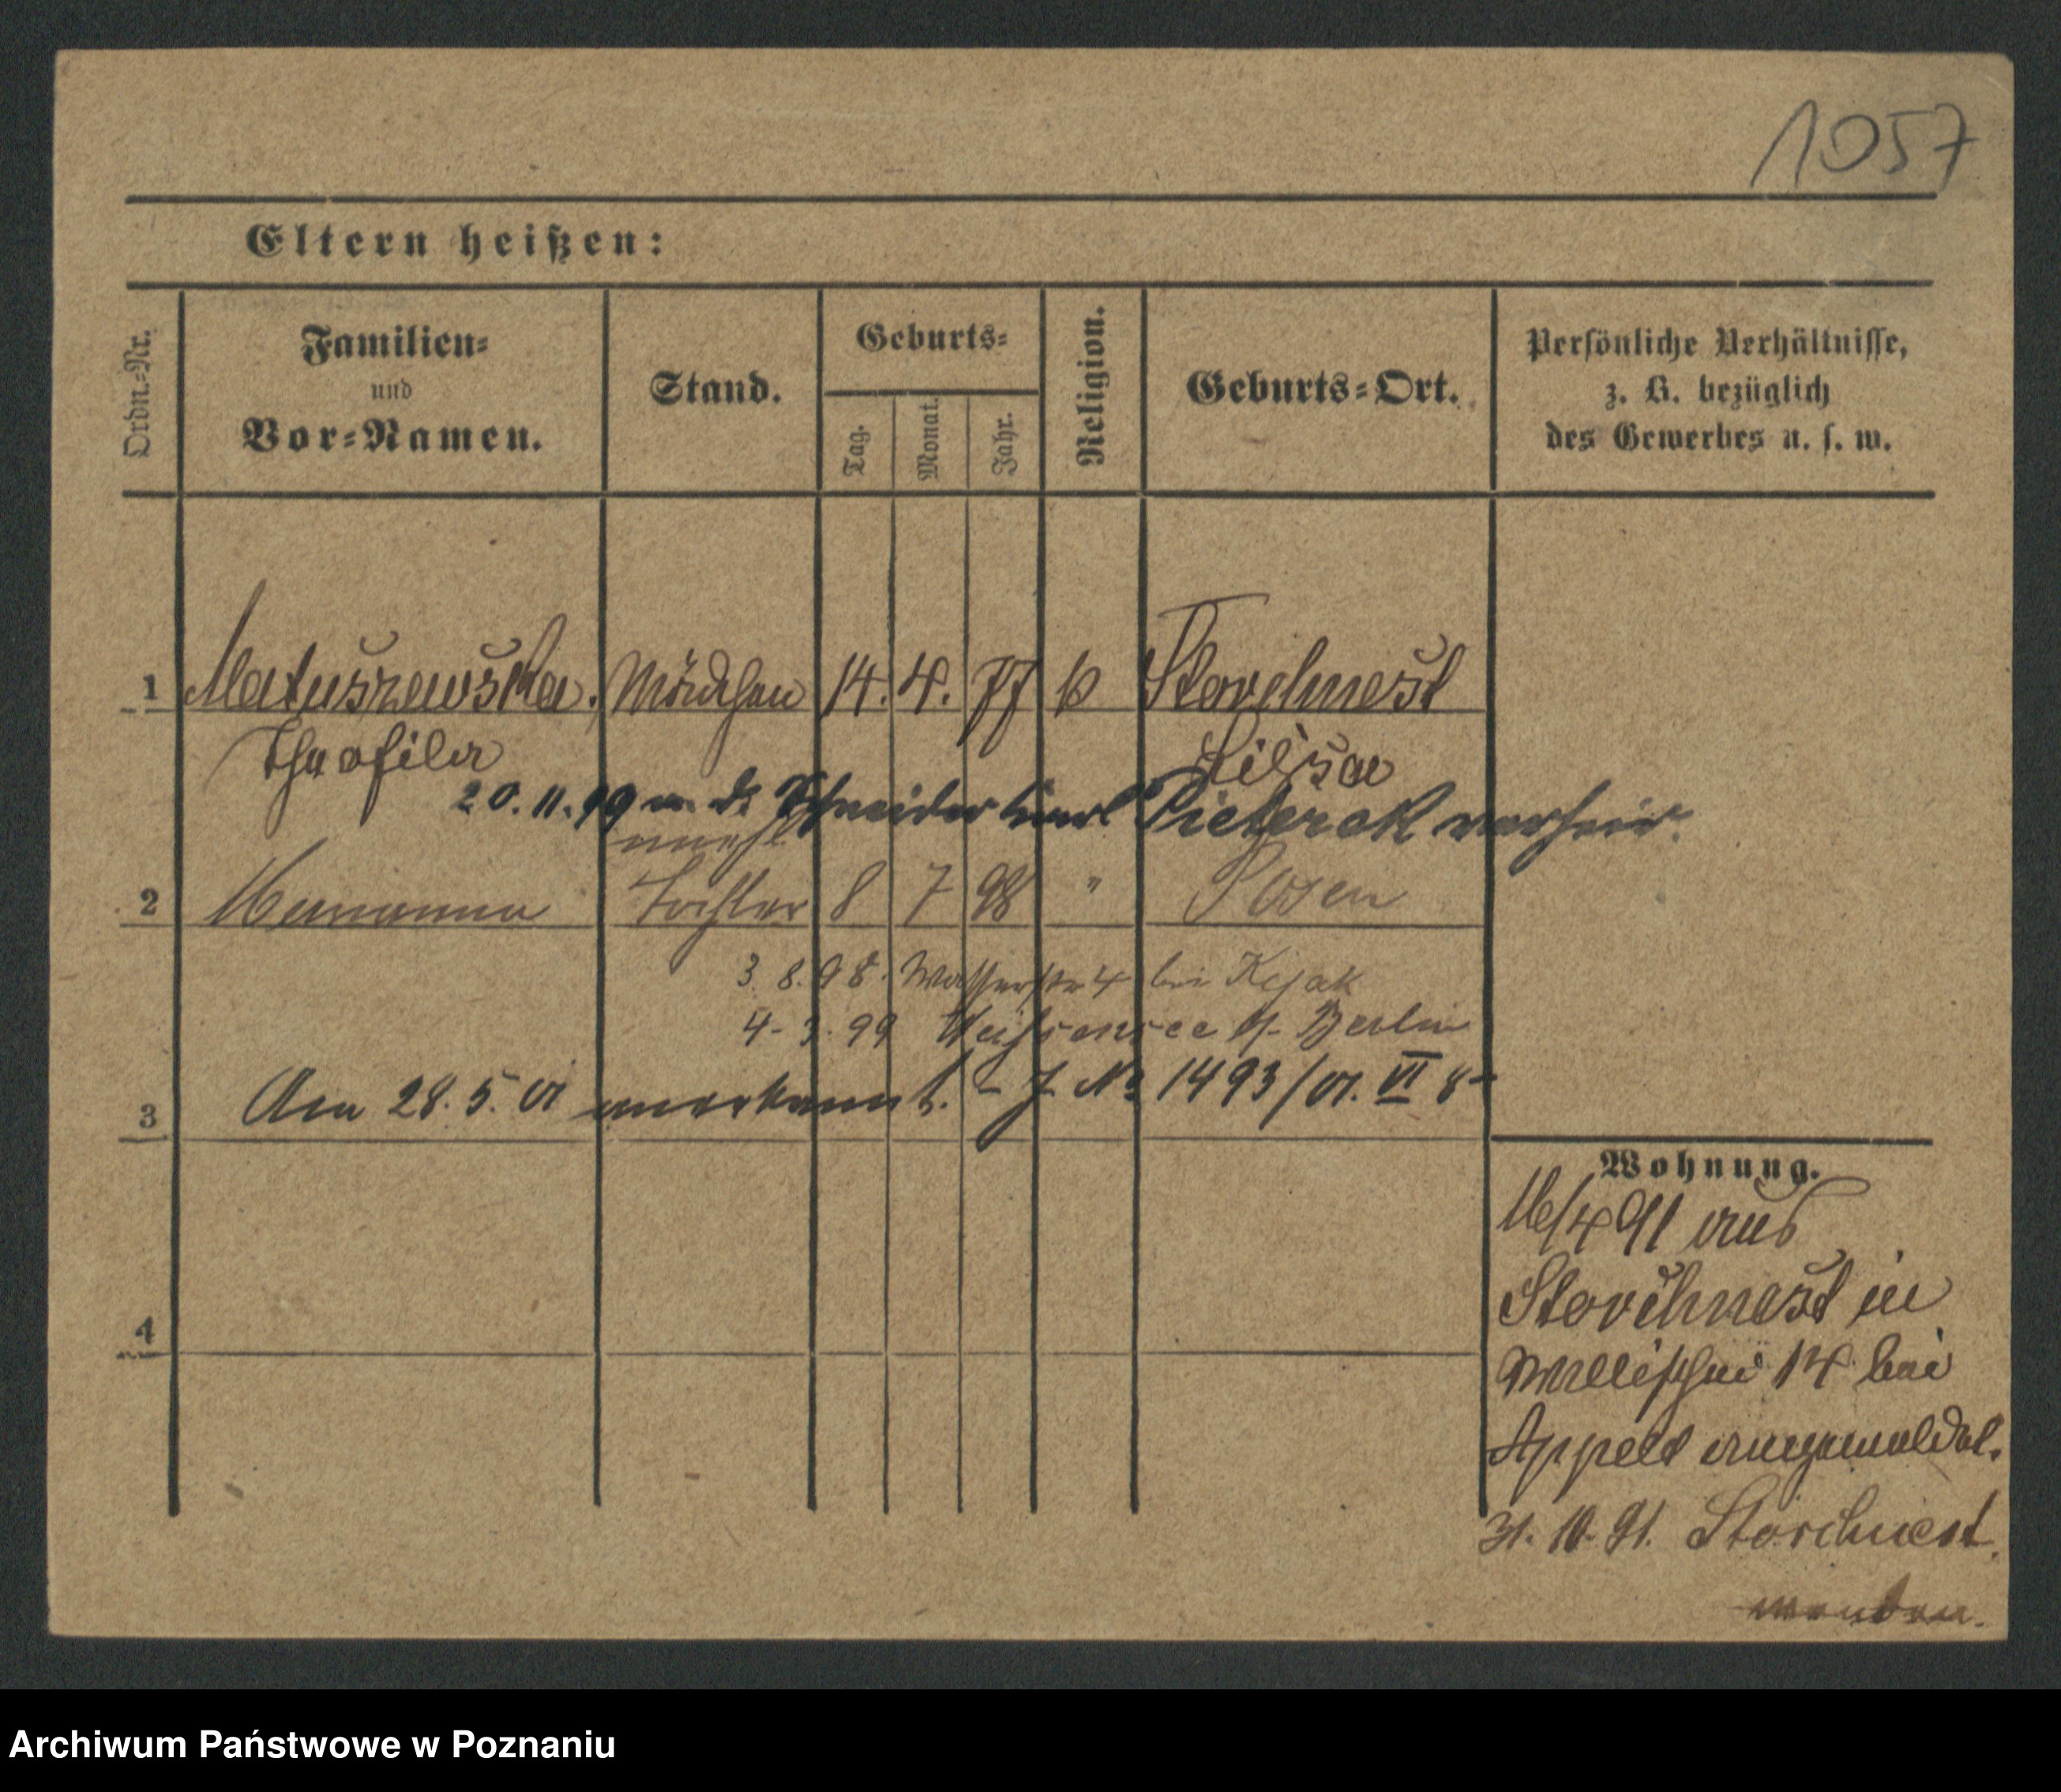 1057
Eltern heißen:
Ordn.-Nr.
Familien-
und
Vor-Namen.
Stand.
Geburts-
Tag.
Monat.
Jahr.
Religion.
Geburts-Ort.
Persönliche Verhältnisse,
z. B. bezüglich
des Gewerbes u. s. w.
1 Matuszewska. Mädchen 14. 4. 77 k Storchnest
Theofila Lissa
20. 11. 99 m. d. Schneider Karl Pieterek verheir.
unehl.
2 Marianna Tochter 8 7 98 " Posen
3. 8. 98. Wasserstr 4 bei Kijak
4. 3. 99 Weißensee b. Berlin
3 Am 28. 5. 01 anerkannt. - J. No 1493/01. VI
4
Wohnung.
16/4 91 aus
Storchnest in
Wallischei 14 bei
Appelt angemeldet.
31. 10. 91. Storchnest.
wenden.
Archiwum Państwowe w Poznaniu